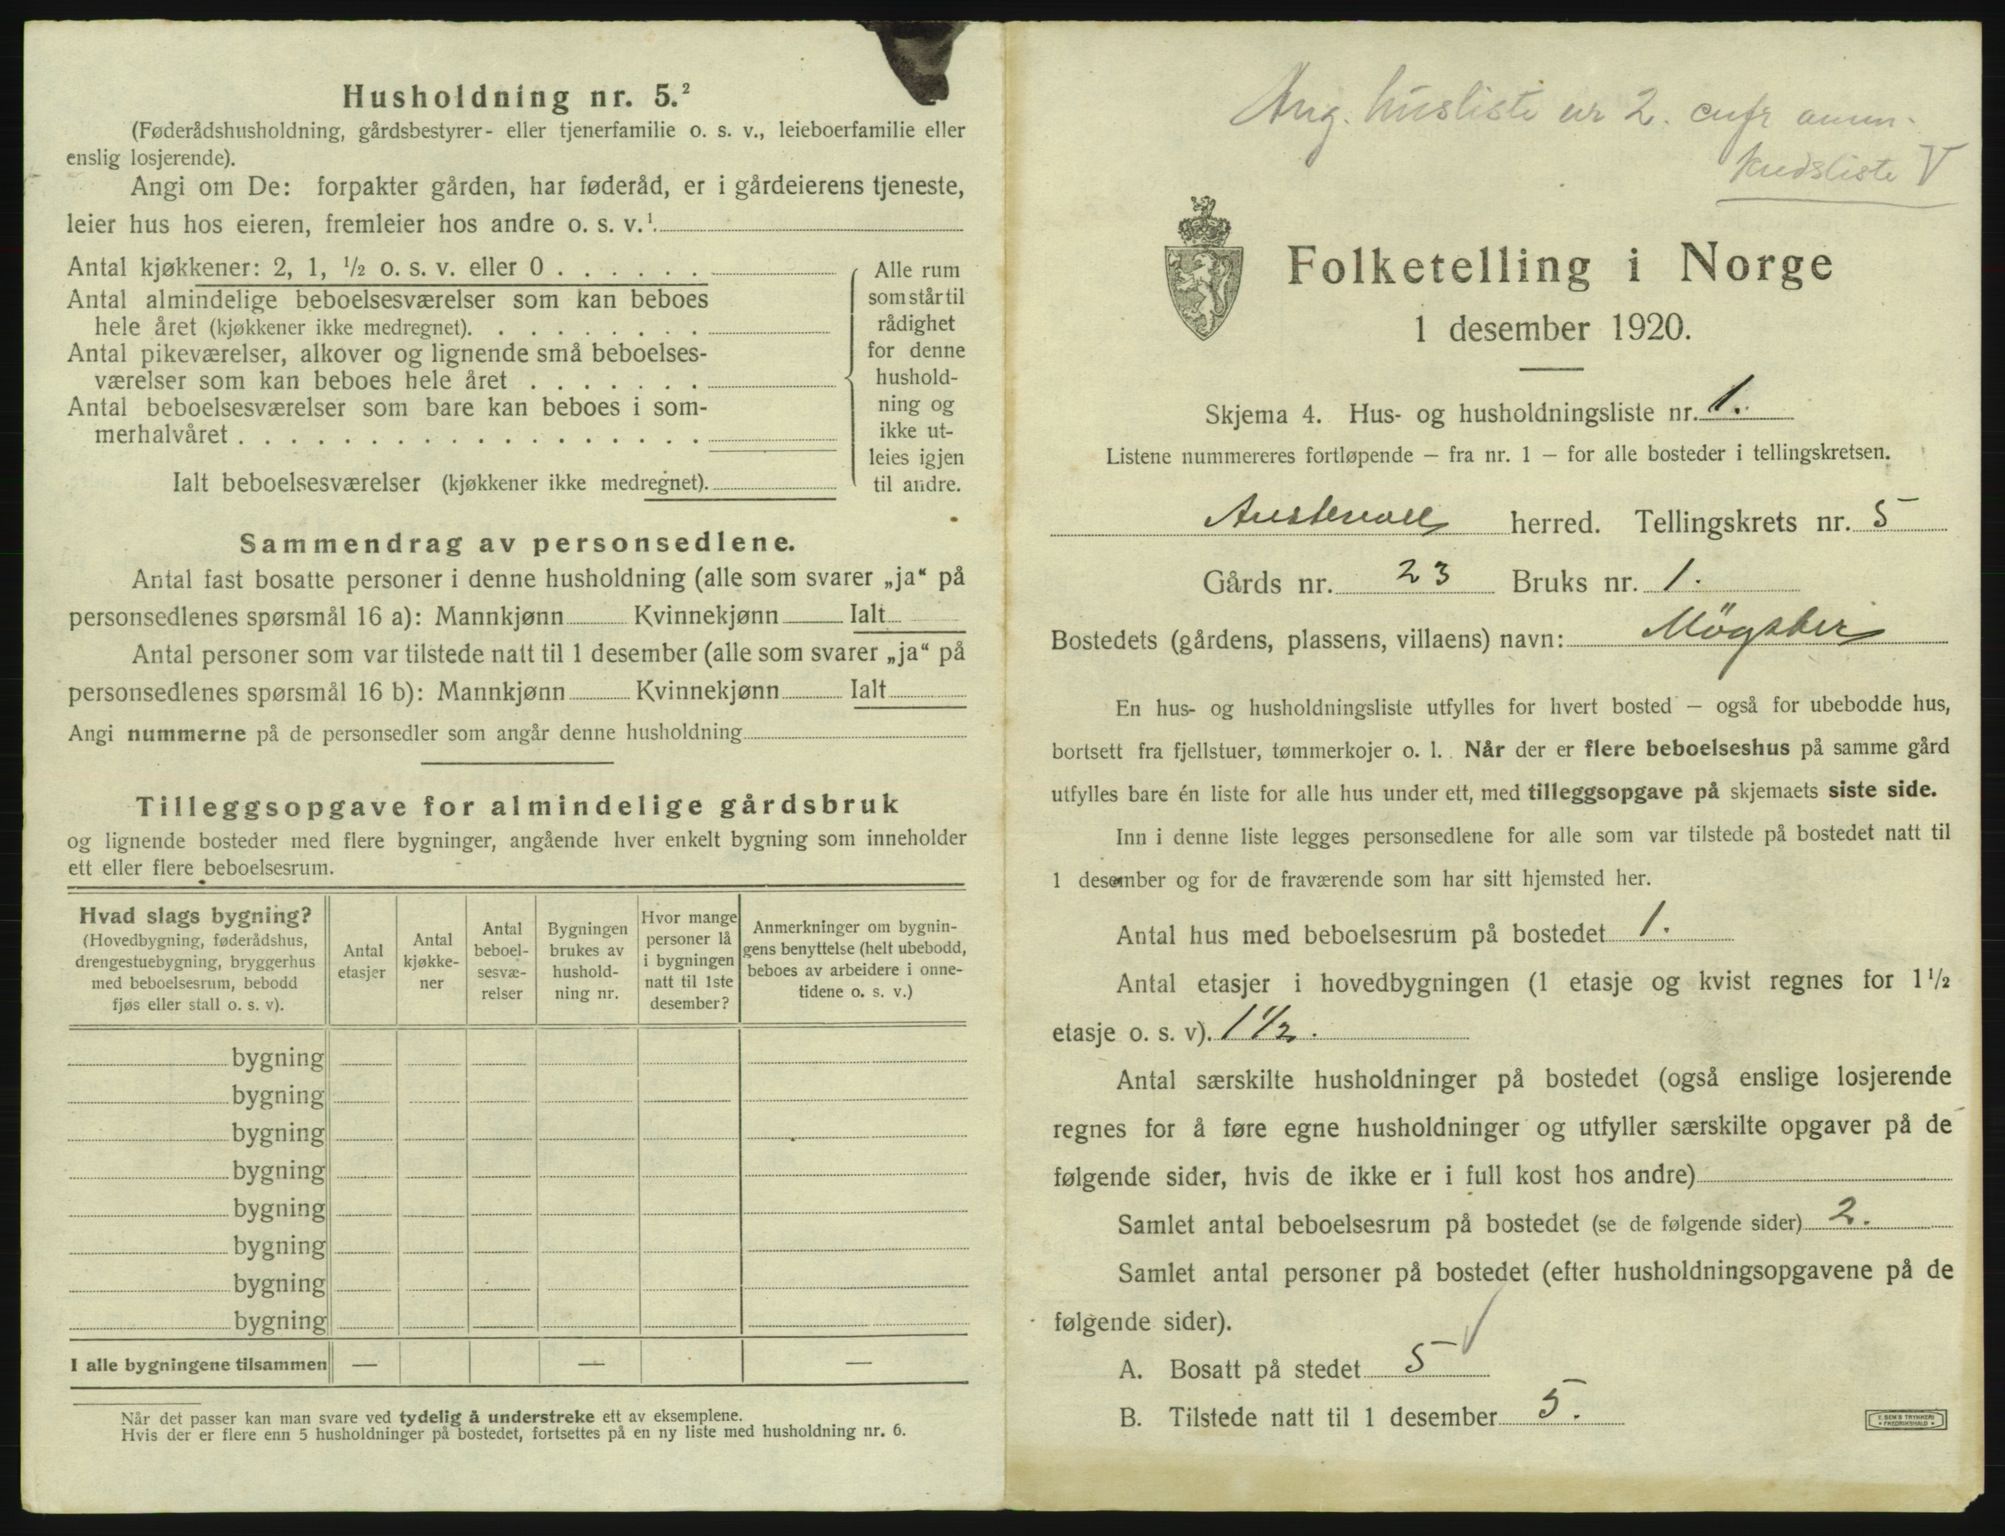 Husholdning nr. 5.²
(Føderådshusholdning, gårdsbestyrer- eller tjenerfamilie o. s. v., leieboerfamilie eller
enslig losjerende).
Angi om De: forpakter gården, har føderåd, er i gårdeierens tjeneste,
leier hus hos eieren, fremleier hos andre o. s. v.¹
Antal kjøkkener: 2, 1, ½ o. s. v. eller 0 . . . . . .
Antal almindelige beboelsesværelser som kan beboes
hele året (kjøkkener ikke medregnet). . . . . . . . .
Antal pikeværelser, alkover og lignende små beboelses-
værelser som kan beboes hele året . . . . . . .
Antal beboelsesværelser som bare kan beboes i som-
merhalvåret . . . . . . . . . . . . . . . . . .
Ialt beboelsesværelser (kjøkkener ikke medregnet).
Alle rum
som står til
rådighet
for denne
hushold-
ning og
ikke ut-
leies igjen
til andre.
Sammendrag av personsedlene.
Antal fast bosatte personer i denne husholdning (alle som svarer „ja“ på
personsedlenes spørsmål 16 a): Mannkjønn Kvinnekjønn Ialt
Antal personer som var tilstede natt til 1 desember (alle som svarer „ja“ på
personsedlenes spørsmål 16 b): Mannkjønn Kvinnekjønn Ialt
Angi nummerne på de personsedler som angår denne husholdning
Tilleggsopgave for almindelige gårdsbruk
og lignende bosteder med flere bygninger, angående hver enkelt bygning som inneholder
ett eller flere beboelsesrum.
Hvad slags bygning?
(Hovedbygning, føderådshus,
drengestuebygning, bryggerhus
med beboelsesrum, bebodd
fjøs eller stall o. s. v).
Antal
etasjer
Antal
kjøkke-
ner
Antal
beboel-
sesvæ-
relser
Bygningen
brukes av
hushold-
ning nr.
Hvor mange
personer lå
i bygningen
natt til 1ste
desember?
Anmerkninger om bygnin-
gens benyttelse (helt ubebodd,
beboes av arbeidere i onne-
tidene o. s. v.)
bygning
bygning
bygning
bygning
bygning
bygning
bygning
bygning
I alle bygningene tilsammen — — —
Når det passer kan man svare ved tydelig å understreke ett av eksemplene.
Hvis der er flere enn 5 husholdninger på bostedet, fortsettes på en ny liste med husholdning nr. 6.
Ang. husliste nr 2. cnfr
V
Folketelling i Norge
1 desember 1920.
Skjema 4. Hus- og husholdningsliste nr. 1.
Listene nummereres fortløpende – fra nr. 1 – for alle bosteder i tellingskretsen.
Austevoll herred. Tellingskrets nr. 5
Gårds nr. 23 Bruks nr. 1.
Bostedets (gårdens, plassens, villaens) navn: Møgster
En hus- og husholdningsliste utfylles for hvert bosted – også for ubebodde hus,
bortsett fra fjellstuer, tømmerkojer o. l. Når der er flere beboelseshus på samme gård
utfylles bare én liste for alle hus under ett, med tilleggsopgave på skjemaets siste side.
Inn i denne liste legges personsedlene for alle som var tilstede på bostedet natt til
1 desember og for de fraværende som har sitt hjemsted her.
Antal hus med beboelsesrum på bostedet 1.
Antal etasjer i hovedbygningen (1 etasje og kvist regnes for 1½
etasje o. s. v). 1½.
Antal særskilte husholdninger på bostedet (også enslige losjerende
regnes for å føre egne husholdninger og utfyller særskilte opgaver på de
følgende sider, hvis de ikke er i full kost hos andre)
Samlet antal beboelsesrum på bostedet (se de følgende sider) 2.
Samlet antal personer på bostedet (efter husholdningsopgavene på de
følgende sider).
A. Bosatt på stedet 5
B. Tilstede natt til 1 desember 5.
E. SEM'S TRYKKERI
FREDRIKSHALD